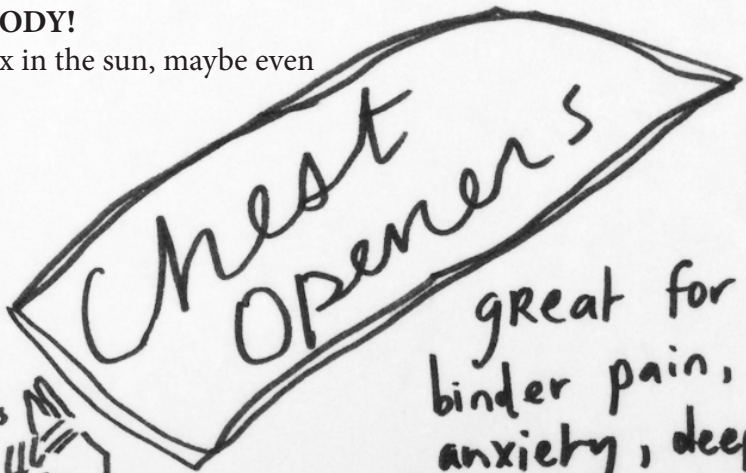 ODY!
x in the sun, maybe even
Chest
Openers
great for
binder pain,
anxiety, deep